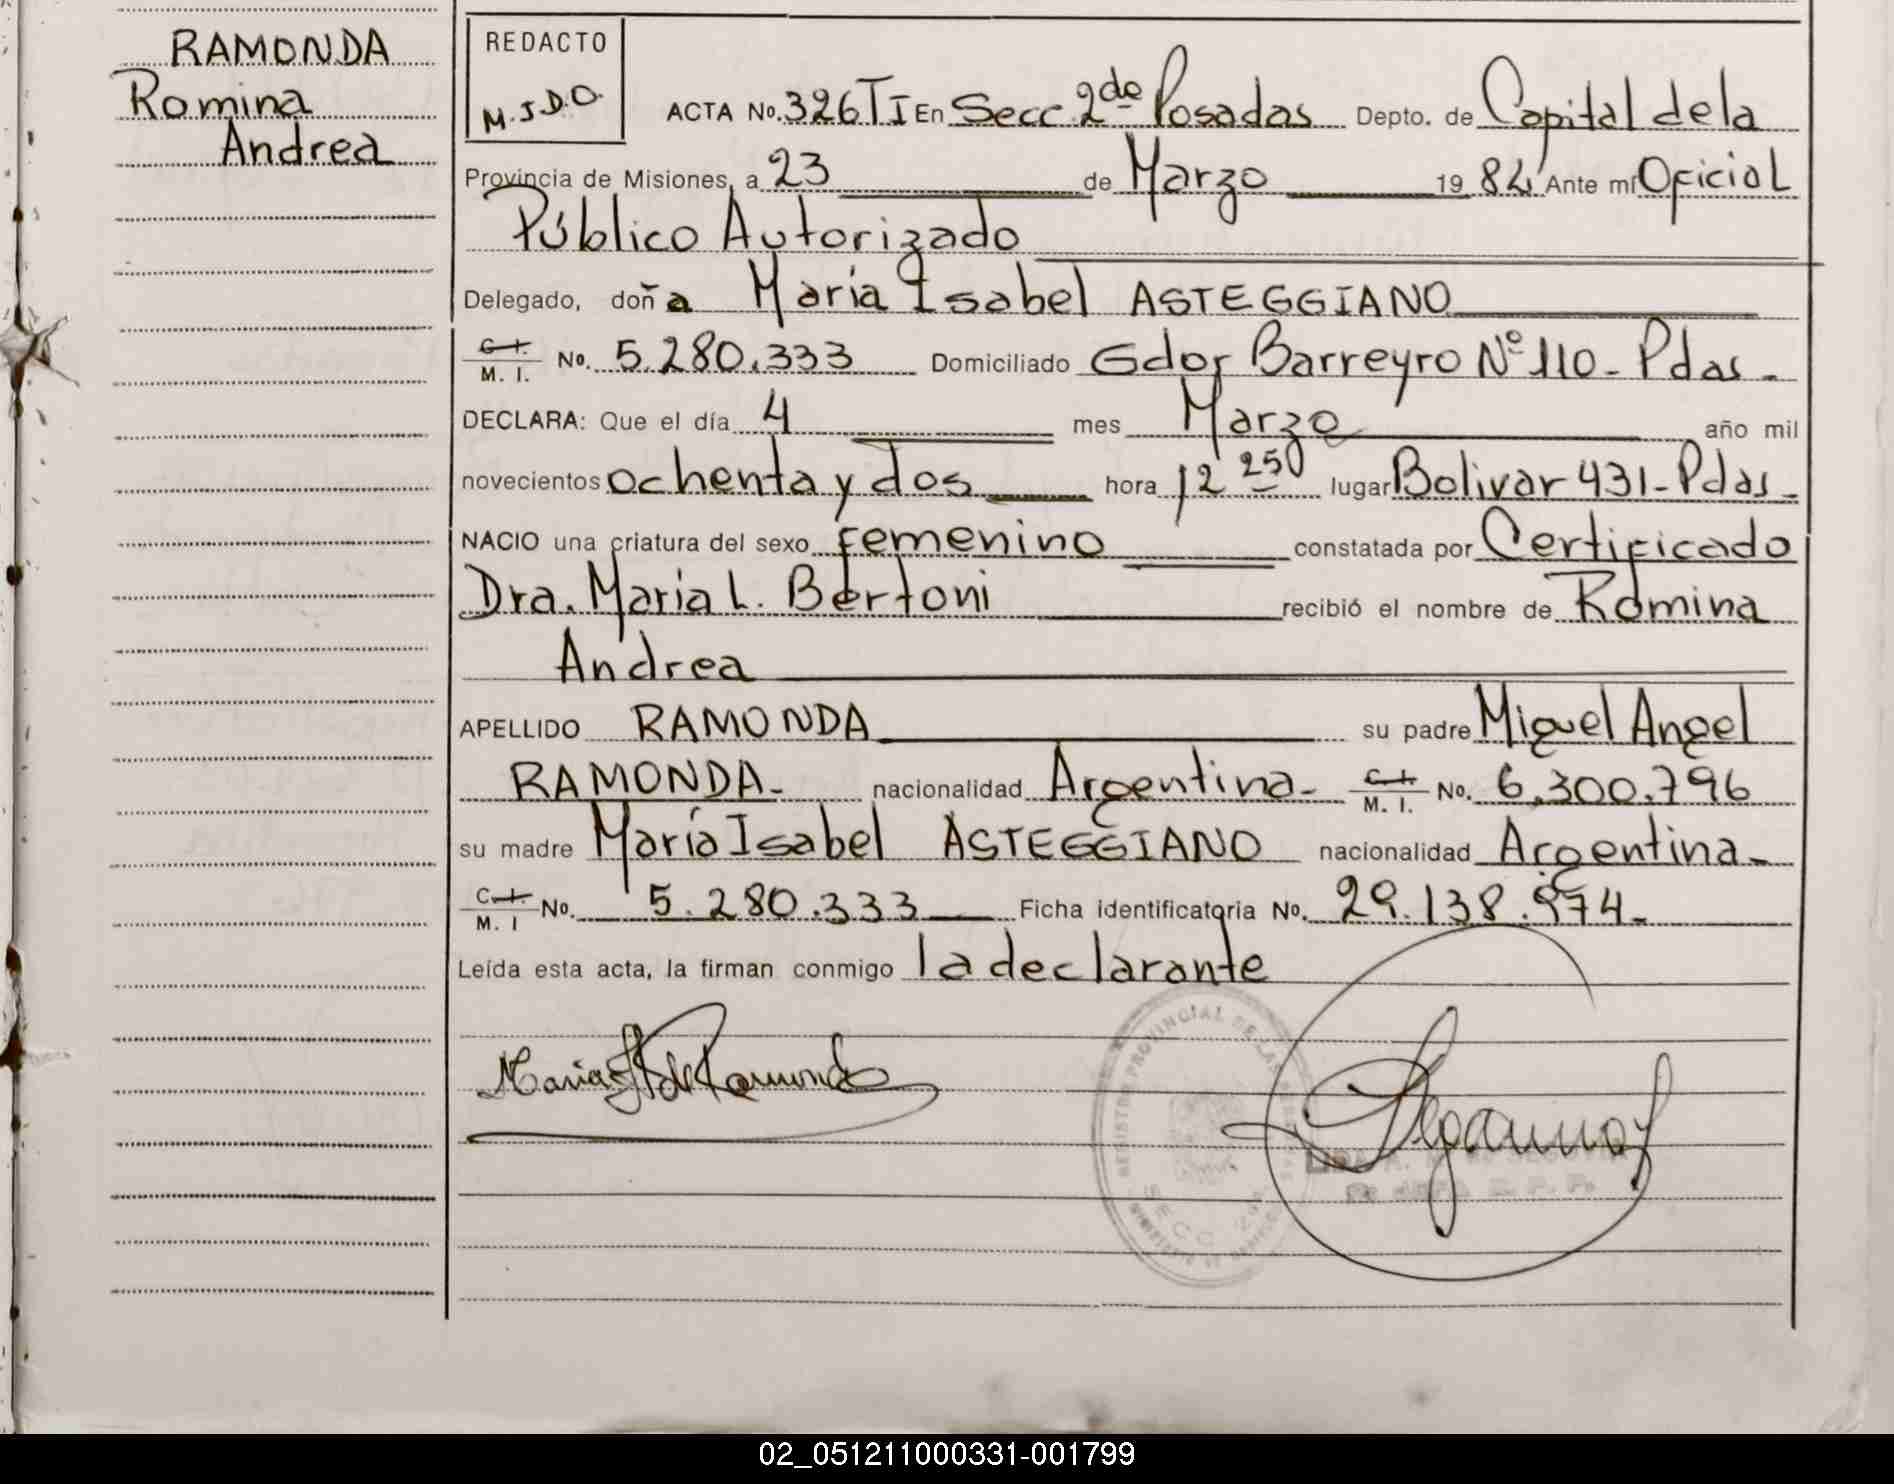 RAMONDA
Romina
Andrea
REDACTO
M.J.D.O.
ACTA No. 326 T I En Secc. 2da de Posadas Depto. de Capital de la
Provincia de Misiones, a 23 de Marzo 19 82 Ante mí Oficial
Público Autorizado
Delegado, doña María Isabel ASTEGGIANO
C. I. M. I. No. 5.280.333 Domiciliado Gdor Barreyro Nº 110 - Pdas -
DECLARA: Que el día 4 mes Marzo año mil
novecientos ochenta y dos hora 12 25 lugar Bolivar 431 - Pdas -
NACIO una criatura del sexo femenino constatada por Certificado
Dra. Maria L. Bertoni recibió el nombre de Romina
Andrea
APELLIDO RAMONDA su padre Miguel Angel
RAMONDA - nacionalidad Argentina - C. I. M. I. No. 6.300.796
su madre María Isabel ASTEGGIANO nacionalidad Argentina -
C. I. M. I No. 5.280.333 Ficha identificatoria No. 29.138.974 -
Leída esta acta, la firman conmigo la declarante
REGISTRO PROVINCIAL DE LAS
SECC. 2da
02_051211000331-001799